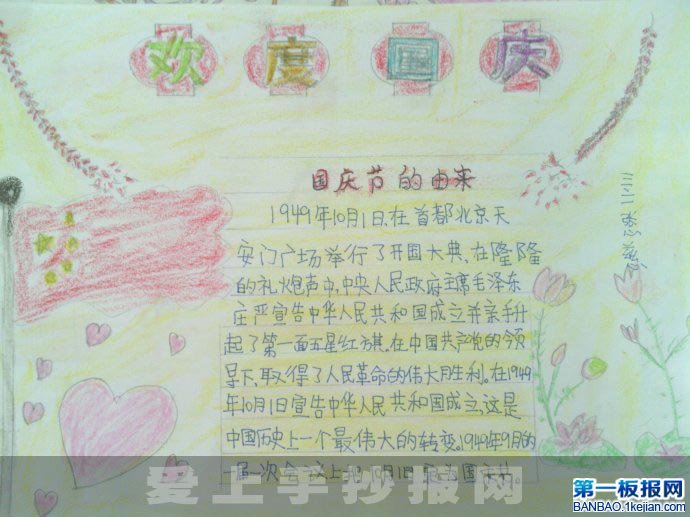 欢度国庆
国庆节的由来
1949年10月1日,在首都北京天
安门广场举行了开国大典,在隆隆
的礼炮声中,中央人民政府主席毛泽东
庄严宣告中华人民共和国成立并亲手升
起了第一面五星红旗.在中国共产党的领
导下,取得了人民革命的伟大胜利。在1949
年10月1日宣告中华人民共和国成立,这是
中国历史上一个最伟大的转变。1949年9月的
一届一次会议上把10月1日 为国庆节。
二(三)
爱上手抄报网
第一板报网
BANBAO.1kejian.com